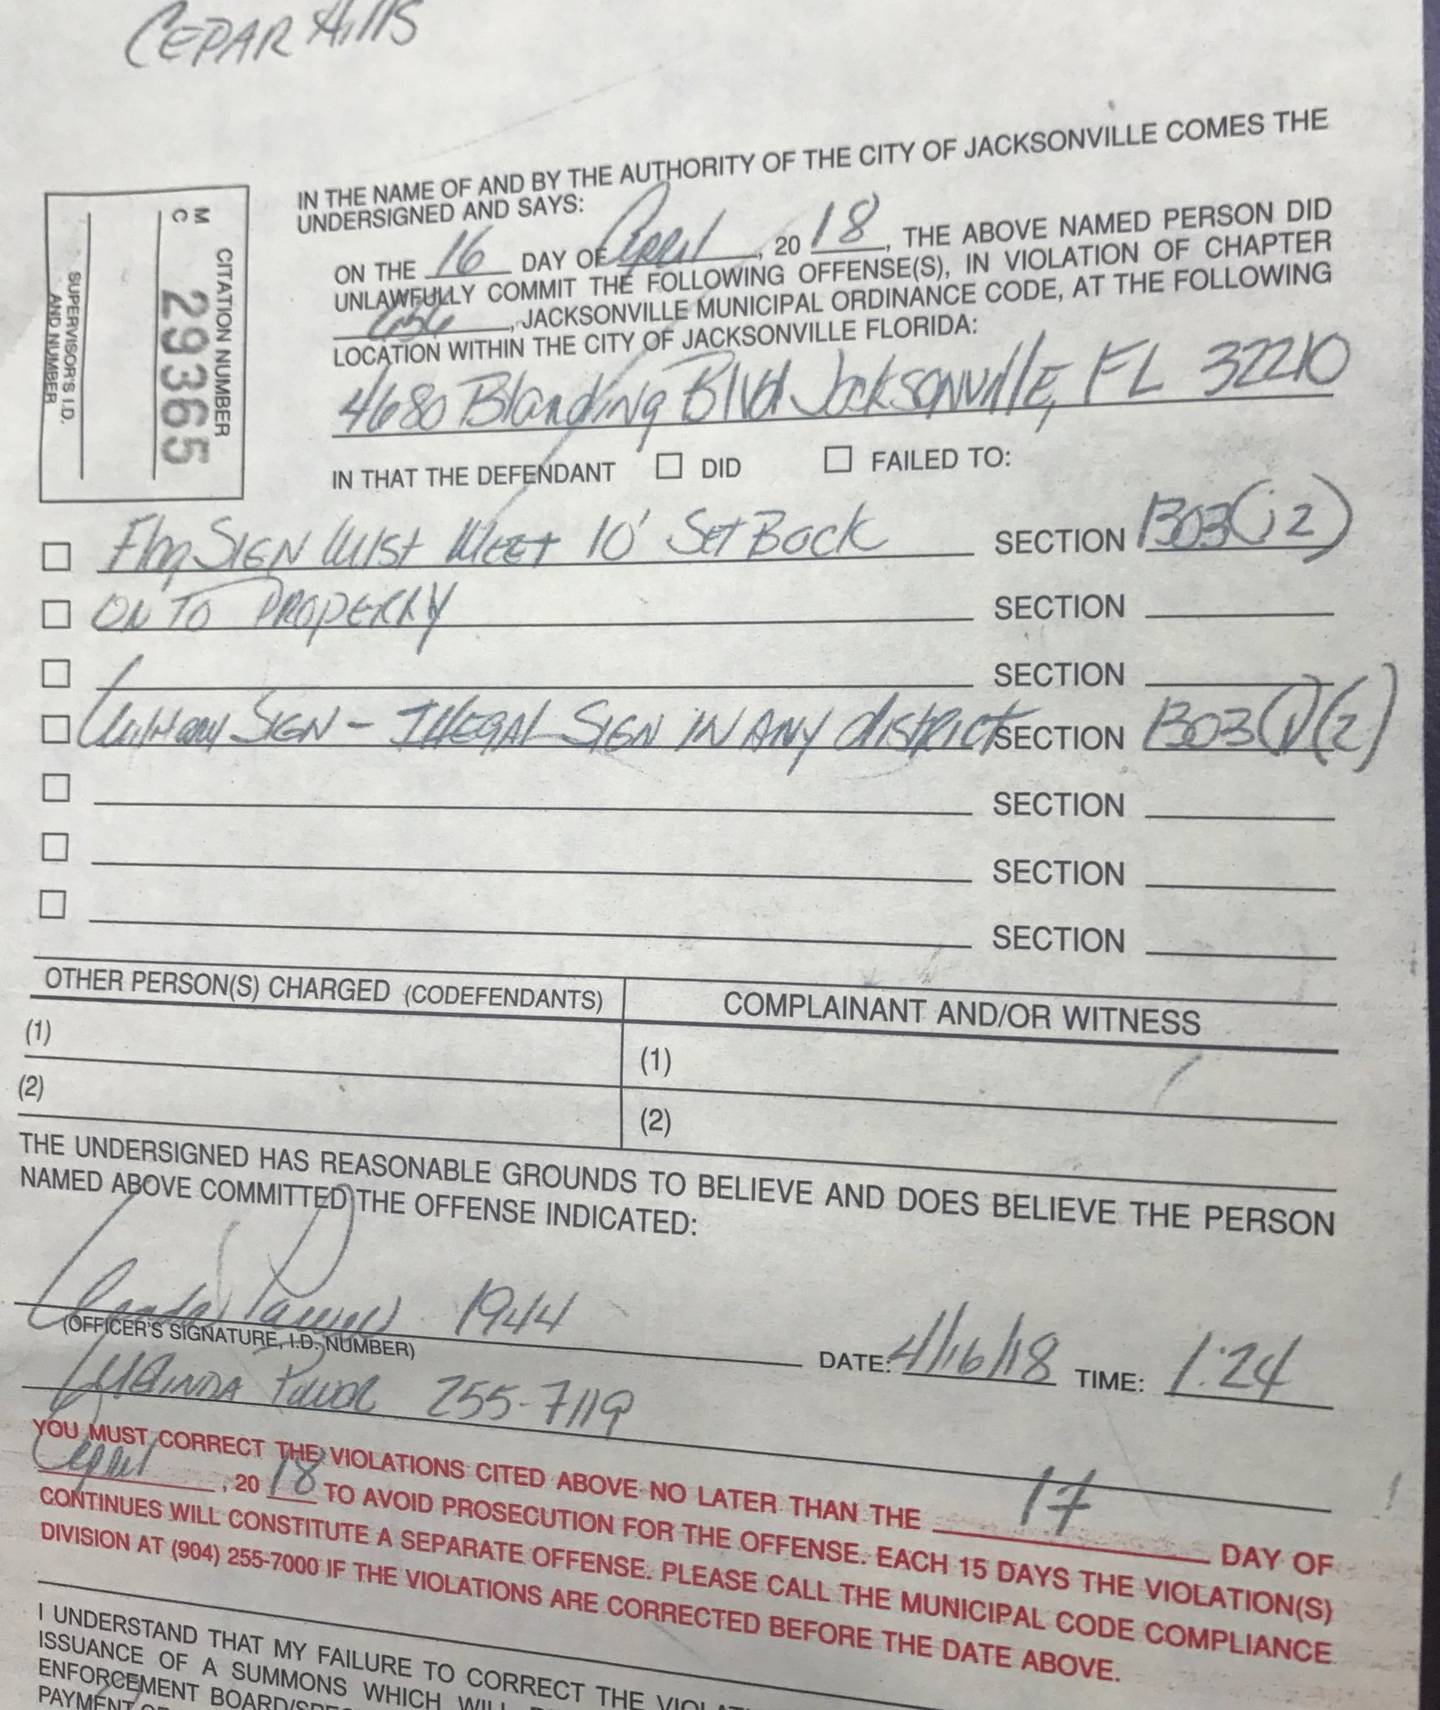 CEDAR Hills
IN THE NAME OF AND BY THE AUTHORITY OF THE CITY OF JACKSONVILLE COMES THE
UNDERSIGNED AND SAYS:
ON THE 16 DAY OF April, 2018, THE ABOVE NAMED PERSON DID
UNLAWFULLY COMMIT THE FOLLOWING OFFENSE(S), IN VIOLATION OF CHAPTER
656, JACKSONVILLE MUNICIPAL ORDINANCE CODE, AT THE FOLLOWING
LOCATION WITHIN THE CITY OF JACKSONVILLE FLORIDA:
4680 Blanding Blvd Jacksonville, FL 32210
CITATION NUMBER
MC 29365
SUPERVISOR'S I.D.
AND NUMBER
IN THAT THE DEFENDANT ☐ DID ☐ FAILED TO:
☐ Flag SIGN Must Meet 10' Set Back SECTION 1303(i2)
☐ ON TO PROPERTY SECTION
☐ SECTION
☐ SIGN - IllEGAL SIGN IN ANY district SECTION 1303(i)(2)
☐ SECTION
☐ SECTION
☐ SECTION
OTHER PERSON(S) CHARGED (CODEFENDANTS) COMPLAINANT AND/OR WITNESS
(1) (1)
(2) (2)
THE UNDERSIGNED HAS REASONABLE GROUNDS TO BELIEVE AND DOES BELIEVE THE PERSON
NAMED ABOVE COMMITTED THE OFFENSE INDICATED:
1944
(OFFICER'S SIGNATURE, I.D. NUMBER) DATE: 4/16/18 TIME: 1:24
255-7119
YOU MUST CORRECT THE VIOLATIONS CITED ABOVE NO LATER THAN THE 17 DAY OF
April, 2018 TO AVOID PROSECUTION FOR THE OFFENSE. EACH 15 DAYS THE VIOLATION(S)
CONTINUES WILL CONSTITUTE A SEPARATE OFFENSE. PLEASE CALL THE MUNICIPAL CODE COMPLIANCE
DIVISION AT (904) 255-7000 IF THE VIOLATIONS ARE CORRECTED BEFORE THE DATE ABOVE.
I UNDERSTAND THAT MY FAILURE TO CORRECT THE
ISSUANCE OF A SUMMONS WHICH WILL
ENFORCEMENT
PAYMENT